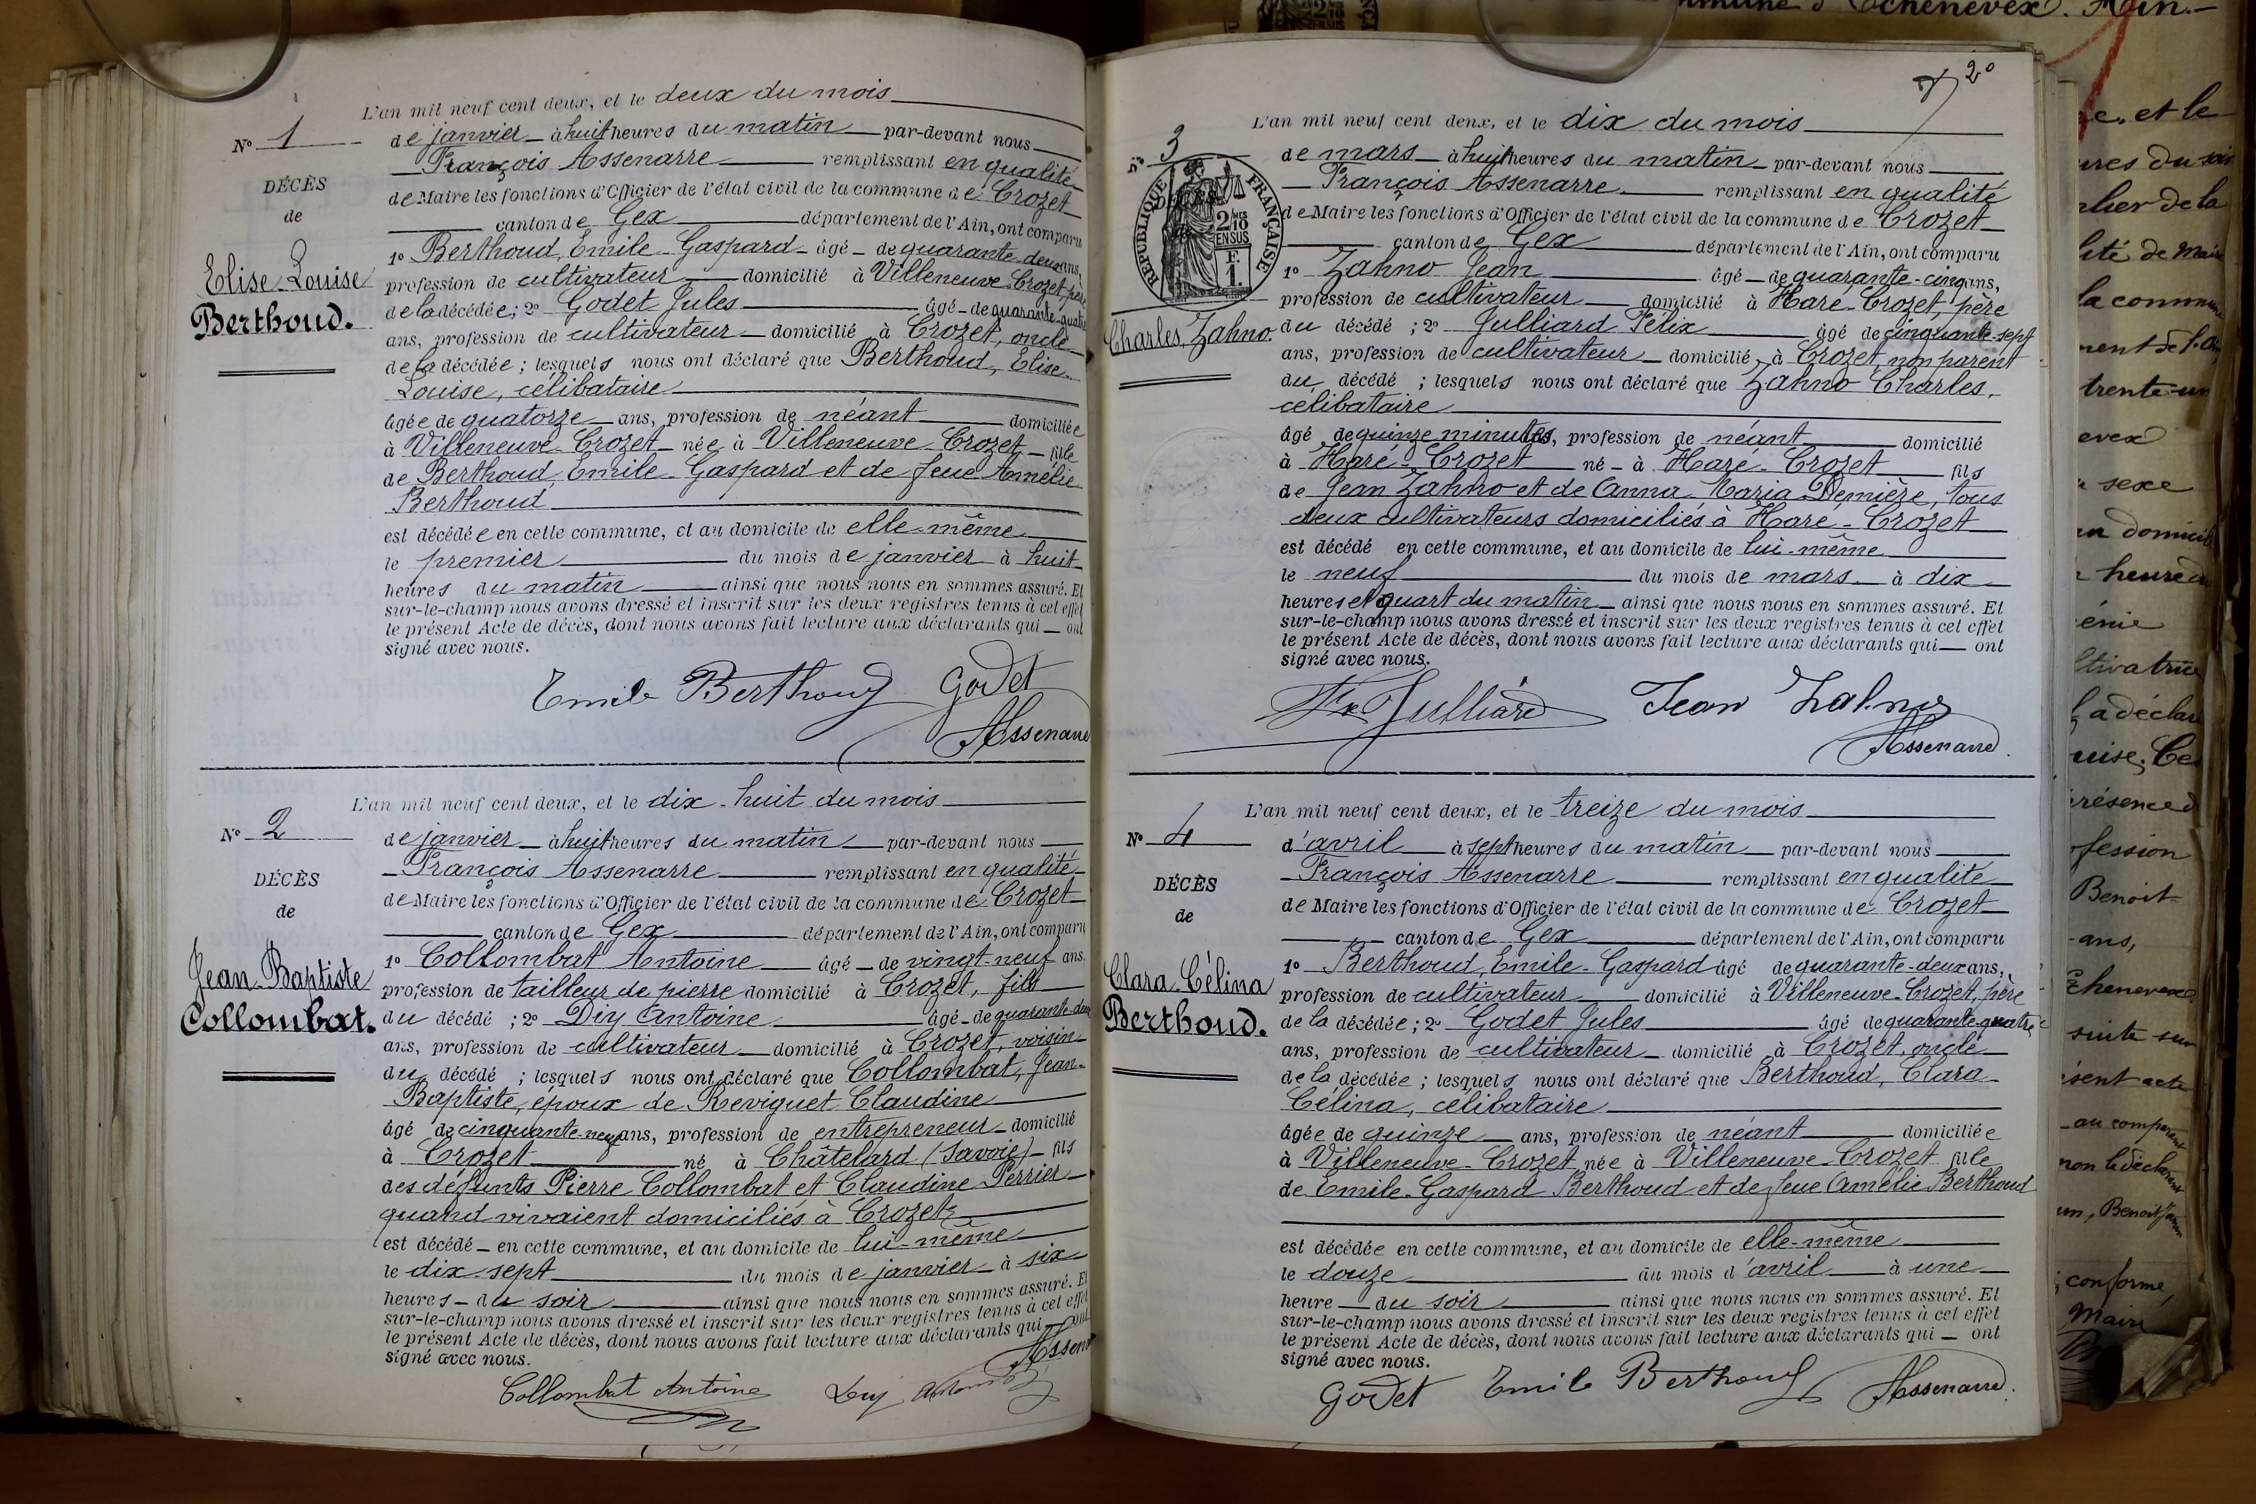 L'an mil neuf cent deux, et le deux du mois
N° 1
de janvier à huit heures du matin par-devant nous
François Assenarre remplissant en qualité
DÉCÈS
de Maire les fonctions d'Officier de l'état civil de la commune de Crozet
de
canton de Gex département de l'Ain, ont comparu
1° Berthoud, Emile-Gaspard âgé de quarante-deux ans,
Elise-Louise
profession de cultivateur domicilié à Villeneuve-Crozet, père
Berthoud.
de la décédée ; 2° Godet Jules âgé de quarante-quatre
ans, profession de cultivateur domicilié à Crozet, oncle
de la décédée ; lesquels nous ont déclaré que Berthoud, Elise-
Louise, célibataire
âgée de quatorze ans, profession de néant domiciliée
à Villeneuve-Crozet née à Villeneuve-Crozet fille
de Berthoud, Emile-Gaspard et de feue Amélie
Berthoud
est décédée en cette commune, et au domicile de elle-même
le premier du mois de janvier à huit
heures du matin ainsi que nous nous en sommes assuré. Et
sur-le-champ nous avons dressé et inscrit sur les deux registres tenus à cet effet
le présent Acte de décès, dont nous avons fait lecture aux déclarants qui ont
signé avec nous.
Emile Berthoud Godet
Assenarre
L'an mil neuf cent deux, et le dix-huit du mois
N° 2
de janvier à huit heures du matin par-devant nous
François Assenarre remplissant en qualité
DÉCÈS
de Maire les fonctions d'Officier de l'état civil de la commune de Crozet
de
canton de Gex département de l'Ain, ont comparu
1° Collombat Antoine âgé de vingt-neuf ans,
Jean-Baptiste
profession de tailleur de pierre domicilié à Crozet, fils
Collombat.
du décédé ; 2° Diy Antoine âgé de quarante-deux
ans, profession de cultivateur domicilié à Crozet, voisin
du décédé ; lesquels nous ont déclaré que Collombat, Jean-
Baptiste, époux de Reviguet Claudine
âgé de cinquante-neuf ans, profession de entrepreneur domicilié
à Crozet né à Châtelard (Savoie) fils
des défunts Pierre Collombat et Claudine Perrier
quand vivaient domiciliés à Crozet
est décédé en cette commune, et au domicile de lui-même
le dix-sept du mois de janvier à six
heures du soir ainsi que nous nous en sommes assuré. Et
sur-le-champ nous avons dressé et inscrit sur les deux registres tenus à cet effet
le présent Acte de décès, dont nous avons fait lecture aux déclarants qui ont
signé avec nous.
Collombat Antoine
2°
L'an mil neuf cent deux, et le dix du mois
N° 3
de mars à huit heures du matin par-devant nous
François Assenarre remplissant en qualité
RÉPUBLIQUE FRANÇAISE
2/10 EN SUS
F. 1.
de Maire les fonctions d'Officier de l'état civil de la commune de Crozet
canton de Gex département de l'Ain, ont comparu
1° Zahno Jean âgé de quarante-cinq ans,
profession de cultivateur domicilié à Haré-Crozet, père
Charles, Zahno.
du décédé ; 2° Julliard Félix âgé de cinquante-sept
ans, profession de cultivateur domicilié à Crozet, non parent
du décédé ; lesquels nous ont déclaré que Zahno Charles,
célibataire
âgé de quinze minutes, profession de néant domicilié
à Haré-Crozet né à Haré-Crozet fils
de Jean Zahno et de Anna-Maria Demière, tous
deux cultivateurs domiciliés à Haré-Crozet
est décédé en cette commune, et au domicile de lui-même
le neuf du mois de mars à dix
heures et quart du matin ainsi que nous nous en sommes assuré. Et
sur-le-champ nous avons dressé et inscrit sur les deux registres tenus à cet effet
le présent Acte de décès, dont nous avons fait lecture aux déclarants qui ont
signé avec nous.
Fx Julliard Jean Zahno
Assenarre
L'an mil neuf cent deux, et le treize du mois
N° 4
d'avril à sept heures du matin par-devant nous
François Assenarre remplissant en qualité
DÉCÈS
de Maire les fonctions d'Officier de l'état civil de la commune de Crozet
de
canton de Gex département de l'Ain, ont comparu
1° Berthoud, Emile-Gaspard âgé de quarante-deux ans,
Clara-Célina
profession de cultivateur domicilié à Villeneuve-Crozet, père
Berthoud.
de la décédée ; 2° Godet Jules âgé de quarante-quatre
ans, profession de cultivateur domicilié à Crozet, oncle
de la décédée ; lesquels nous ont déclaré que Berthoud, Clara
Célina, célibataire
âgée de quinze ans, profession de néant domiciliée
à Villeneuve-Crozet née à Villeneuve-Crozet fille
de Emile-Gaspard Berthoud et de feue Amélie Berthoud
est décédée en cette commune, et au domicile de elle-même
le douze du mois d'avril à une
heure du soir ainsi que nous nous en sommes assuré. Et
sur-le-champ nous avons dressé et inscrit sur les deux registres tenus à cet effet
le présent Acte de décès, dont nous avons fait lecture aux déclarants qui ont
signé avec nous.
Godet Emile Berthoud Assenarre
et le
de la
de Mair
la commune
trente-un
sexe
domicile
heure du
a déclar
fession
Benoit
ans,
suite sur
acte
conforme,
Maire